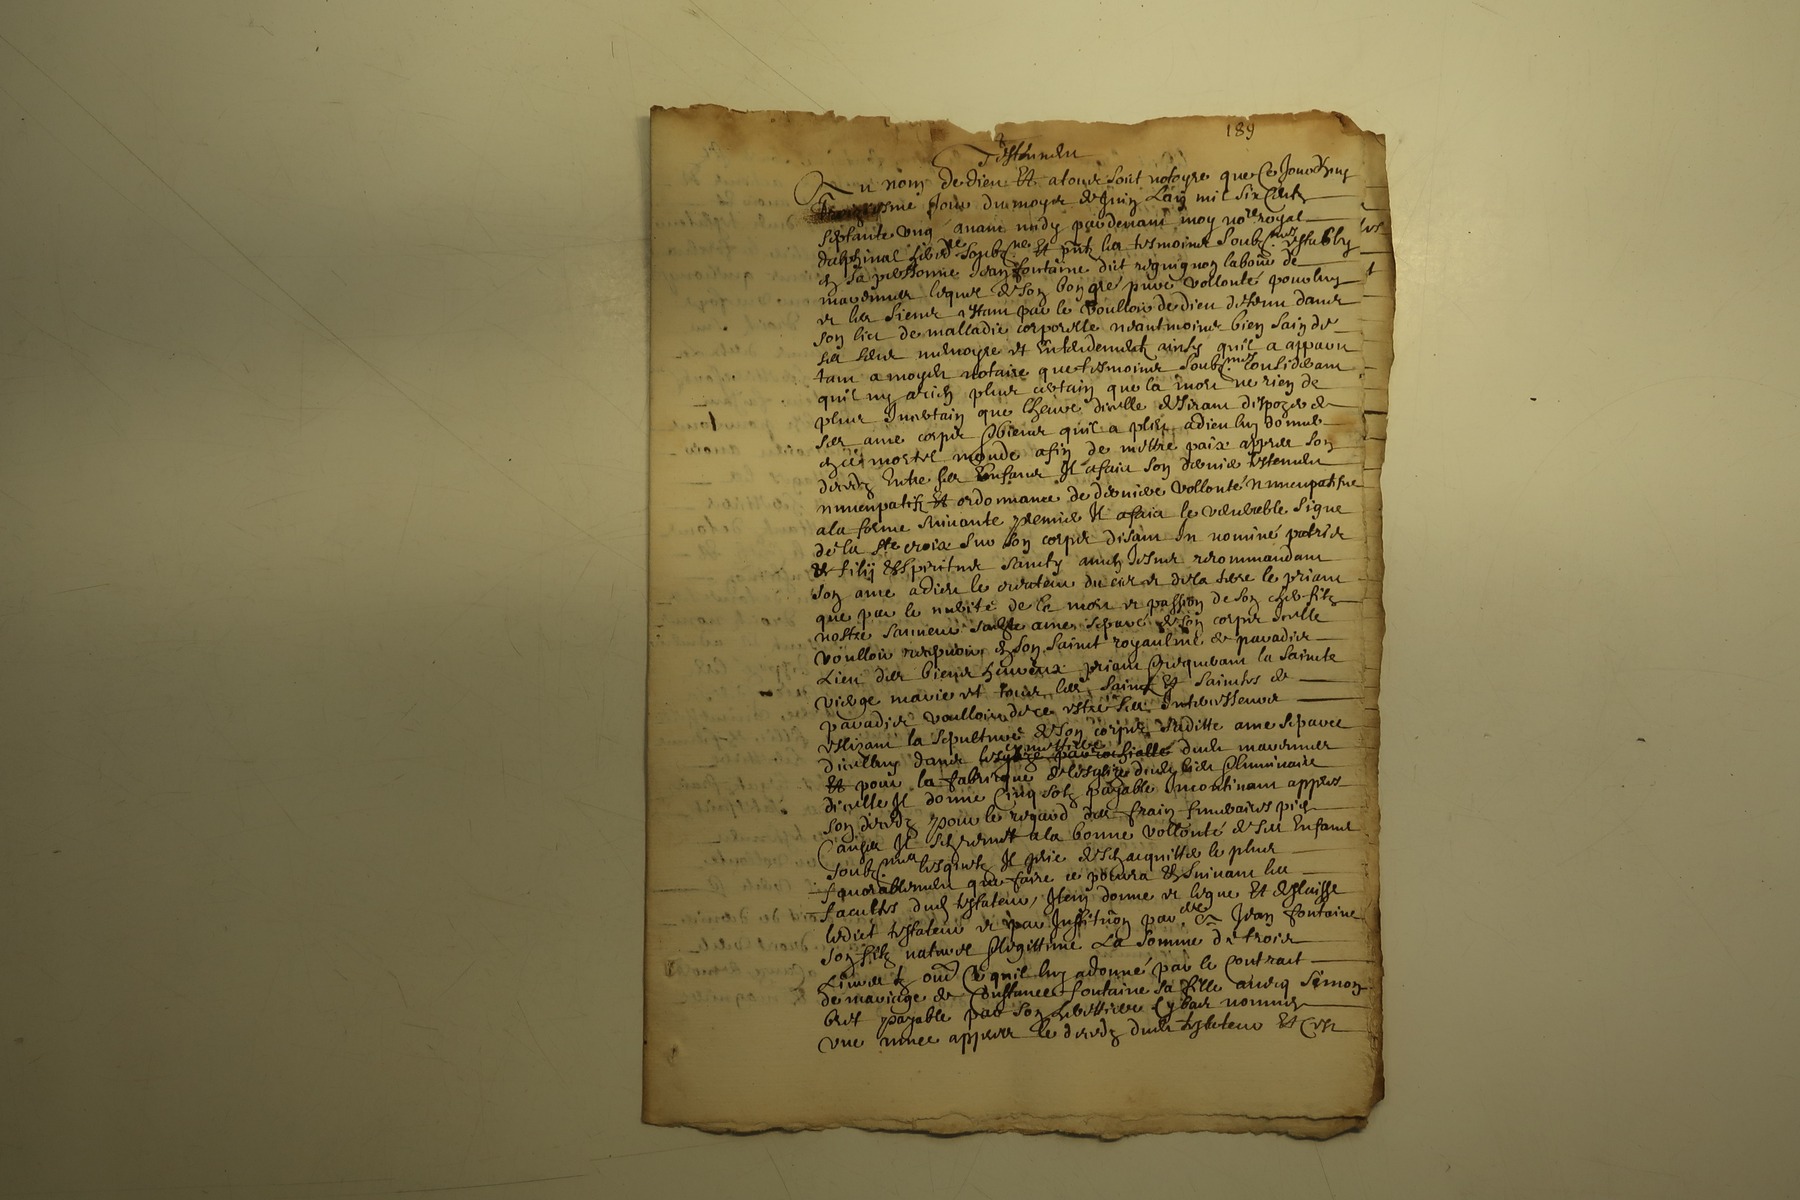 189
Testament
Au nom de dieu Et atous soit notoyre que Ce Jourdhuy
jour du moys de Juin Lan mil six Centz
septante ung avant midy pardevant moy nore royal
dalphinal soubzne Et pntz les tesmoins soubznes estably
en sa personne Jean fontaine dit labour de
lequel de son bon gre pure vollonté pour luy
et les siens estant par le voulloir de dieu detenu dans
son lict de malladie corporelle neantmoins bien sain de
ses sens memoyre et Entendement ainsy quil a apparu
tant a moydit notaire que tesmoins soubznes considerant
quil ny arien plus certain que la mort ne rien de
plus Incertain que Lheure dicelle desirant dispozer de
ses ame corps &biens quil a pleu adieu luy donner
en ce mortel monde afin de mettre paix appres son
deces Entre ses Enfans Il afaict son dernier testement
nuncupatif Et ordonnance de derniere vollonté nuncupatifve
ala forme suivante premier Il afaict le venerable signe
de la ste croix sur son corps disant In nomine patris
et filij Et spiritus sancty amen recommandant
son ame adieu le createur du ciel et dela terre le priant
que par le merite de la mort et passion de son cher filz
nostre sauveur sadte ame separé de son corps Icelle
voulloir recepvoir en son sainct royaulme de paradis
Lieu des biens heureux priant &requerant la saincte
vierge marie et tous les saincts Et sainctes de
paradis voulloir de ce estre ses Intercesseurs
eslisant la sepulture de son corps saditte ame separee
diceluy dans le simettiere dudt
Et pour la fabrique de lesglize dudt lieu &luminaire
dicelle Il donne Cinq solz payable Incontinant appres
son deces pour le regard des frais funeraires pies
Causes Il ala bonne vollonté de ses Enfans
soubznes lesquelz Il prie de sen acquitter le plus
favorablement que faire ce pourra Et suivant les
facultes dudt testateur, Item donne et legue Et delaisse
ledict testateur et par Institution par Jean fontaine
son filz naturel &legittime La somme de trois
Livres tz outre Ce quil luy adonné par le Contrait
de mariage de Constance fontaine sa fille avecq simon
payable par son nommes
une annee appres le deces dudt testateur Et Cest